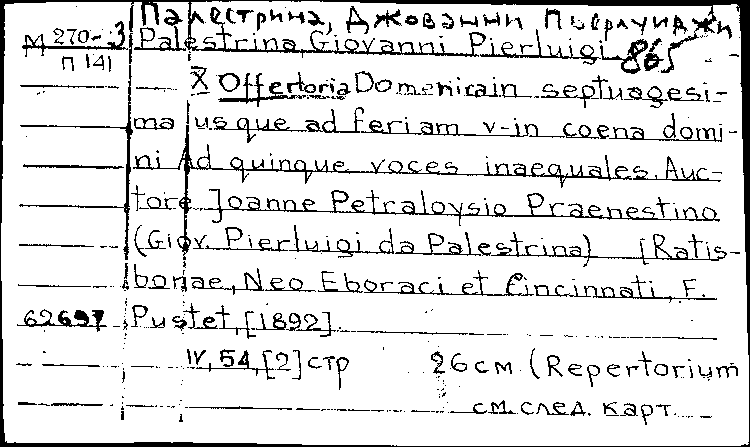 Палестрина, Джованни Пьерлуиджи
М 270-3 Palestrina, Giovanni Pierluigi 865
П 141
X Offertoria Domenicain septuagesi-
ma usque ad feriam v-in coena domi-
ni Ad quinque voces inaequales. Auc-
tore Joanne Petraloysio Praenestino
(Giov. Pierluigi da Palestrina) [Ratis-
bonae, Neo Eboraci et Cincinnati, F.
62697 Pustet, [1892].
IV, 54, [2] стр 26 см (Repertorium
см. след. карт.